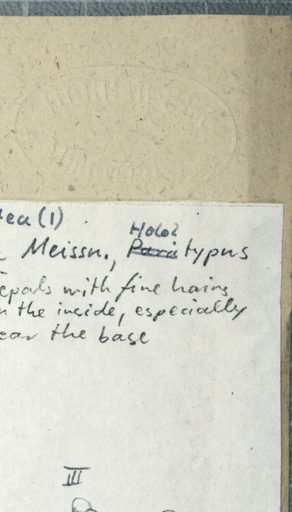 ea (1)
Holo?
Meissn., Paratypus
epals with fine hairs
n the inside, especially
ear the base
III